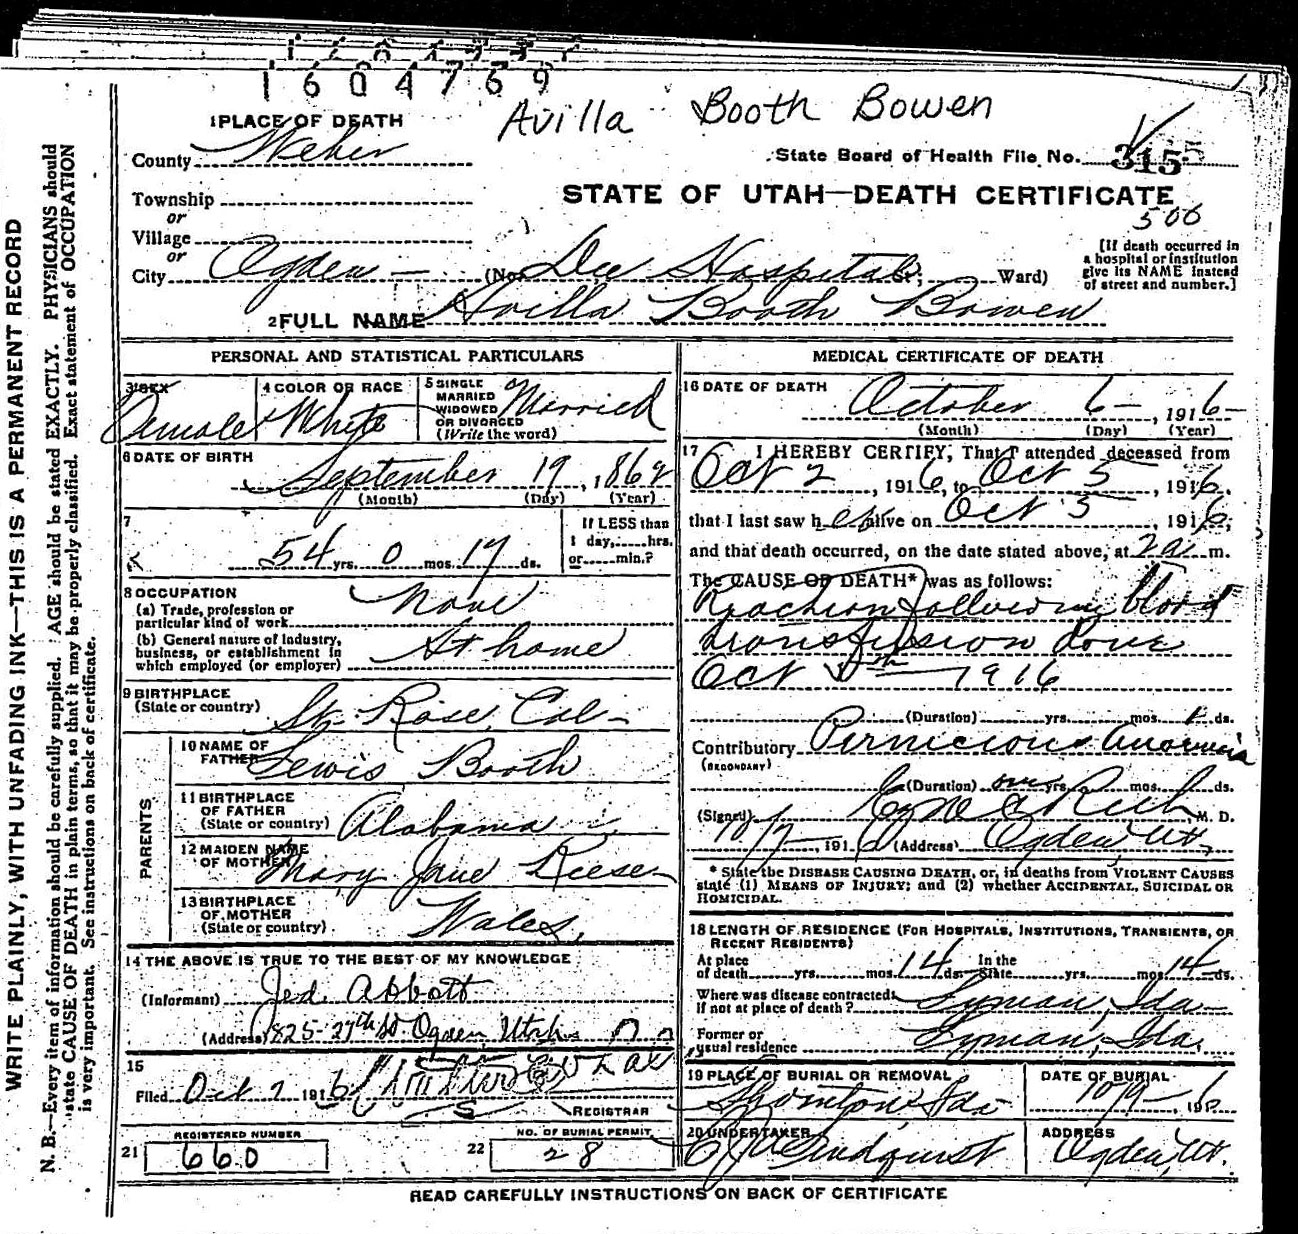 1604769
Avilla Booth Bowen
1 PLACE OF DEATH
County Weber
State Board of Health File No. 315
Township
or
Village
or
City Ogden (No. Dee Hospital St.; Ward)
STATE OF UTAH—DEATH CERTIFICATE
506
[If death occurred in
a hospital or institution
give its NAME instead
of street and number.]
2 FULL NAME Avilla Booth Bowen
PERSONAL AND STATISTICAL PARTICULARS
3 SEX Female
4 COLOR OR RACE White
5 SINGLE
MARRIED
WIDOWED
OR DIVORCED
(Write the word) Married
6 DATE OF BIRTH
September 19, 1862
(Month) (Day) (Year)
7
54 yrs. 0 mos. 17 ds.
If LESS than
1 day, hrs.
or min.?
8 OCCUPATION
(a) Trade, profession or
particular kind of work None
(b) General nature of industry,
business, or establishment in
which employed (or employer) At home
9 BIRTHPLACE
(State or country) St. Rose, Cal
PARENTS
10 NAME OF
FATHER Lewis Booth
11 BIRTHPLACE
OF FATHER
(State or country) Alabama
12 MAIDEN NAME
OF MOTHER Mary Jane Reese
13 BIRTHPLACE
OF MOTHER
(State or country) Wales,
14 THE ABOVE IS TRUE TO THE BEST OF MY KNOWLEDGE
(Informant) Jed. Abbott
(Address) 825-27th St Ogden, Utah
15
Filed Oct 7 1916
REGISTRAR
21 REGISTERED NUMBER
660
22 NO. OF BURIAL PERMIT
28
MEDICAL CERTIFICATE OF DEATH
16 DATE OF DEATH
October 6, 1916
(Month) (Day) (Year)
17 I HEREBY CERTIFY, That I attended deceased from
Oct 2, 1916, to Oct 5, 1916.
that I last saw her alive on Oct 5, 1916,
and that death occurred, on the date stated above, at 2a. m.
The CAUSE OF DEATH* was as follows:
Reaction following blood
transfusion done
Oct 5th 1916
(Duration) yrs. mos. 1 ds.
Contributory Pernicious Anaemia
(SECONDARY)
(Duration) one yrs. mos. ds.
(Signed) Rich, M. D.
10/7, 1916 (Address) Ogden, Ut.
* State the DISEASE CAUSING DEATH, or, in deaths from VIOLENT CAUSES
state (1) MEANS OF INJURY; and (2) whether ACCIDENTAL, SUICIDAL OR
HOMICIDAL.
18 LENGTH OF RESIDENCE (FOR HOSPITALS, INSTITUTIONS, TRANSIENTS, OR
RECENT RESIDENTS)
At place
of death yrs. mos. 14 ds.
In the
State yrs. mos. 14 ds.
Where was disease contracted,
if not at place of death? Lyman, Ida
Former or
usual residence Lyman, Ida,
19 PLACE OF BURIAL OR REMOVAL
Thornton, Ida
DATE OF BURIAL
10/9, 1916
20 UNDERTAKER
Lindquist
ADDRESS
Ogden, Ut.
READ CAREFULLY INSTRUCTIONS ON BACK OF CERTIFICATE
WRITE PLAINLY, WITH UNFADING INK—THIS IS A PERMANENT RECORD
N. B.—Every item of information should be carefully supplied. AGE should be stated EXACTLY. PHYSICIANS should
state CAUSE OF DEATH in plain terms, so that it may be properly classified. Exact statement of OCCUPATION
is very important. See instructions on back of certificate.